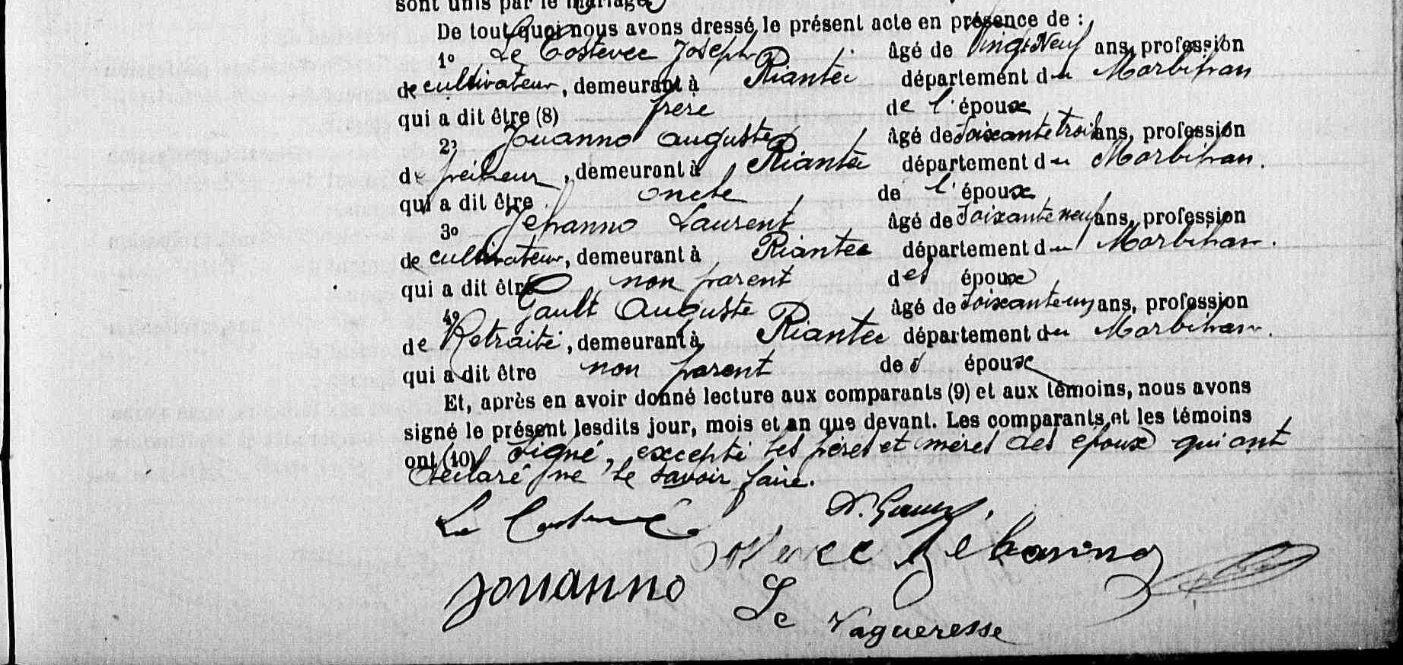 sont unis par le mariage
De tout quoi nous avons dressé le présent acte en présence de :
1º Le Costevec Joseph âgé de Vingt Neuf ans, profession
de cultivateur, demeurant à Riantec département du Morbihan
qui a dit être (8) frère de l'époux
2º Jouanno Auguste âgé de soixante trois ans, profession
de pêcheur, demeurant à Riantec département du Morbihan.
qui a dit être oncle de l'époux
3º Jehanno Laurent âgé de soixante neuf ans, profession
de cultivateur, demeurant à Riantec département du Morbihan.
qui a dit être non parent des époux
4º Gault Auguste âgé de soixante un ans, profession
de Retraité, demeurant à Riantec département du Morbihan.
qui a dit être non parent des époux
Et, après en avoir donné lecture aux comparants (9) et aux témoins, nous avons
signé le présent lesdits jour, mois et an que devant. Les comparants et les témoins
ont (10) signé, excepté les pères et mères des époux qui ont
déclaré ne le savoir faire.
Le
Jehanno
Jouanno Le Vagueresse